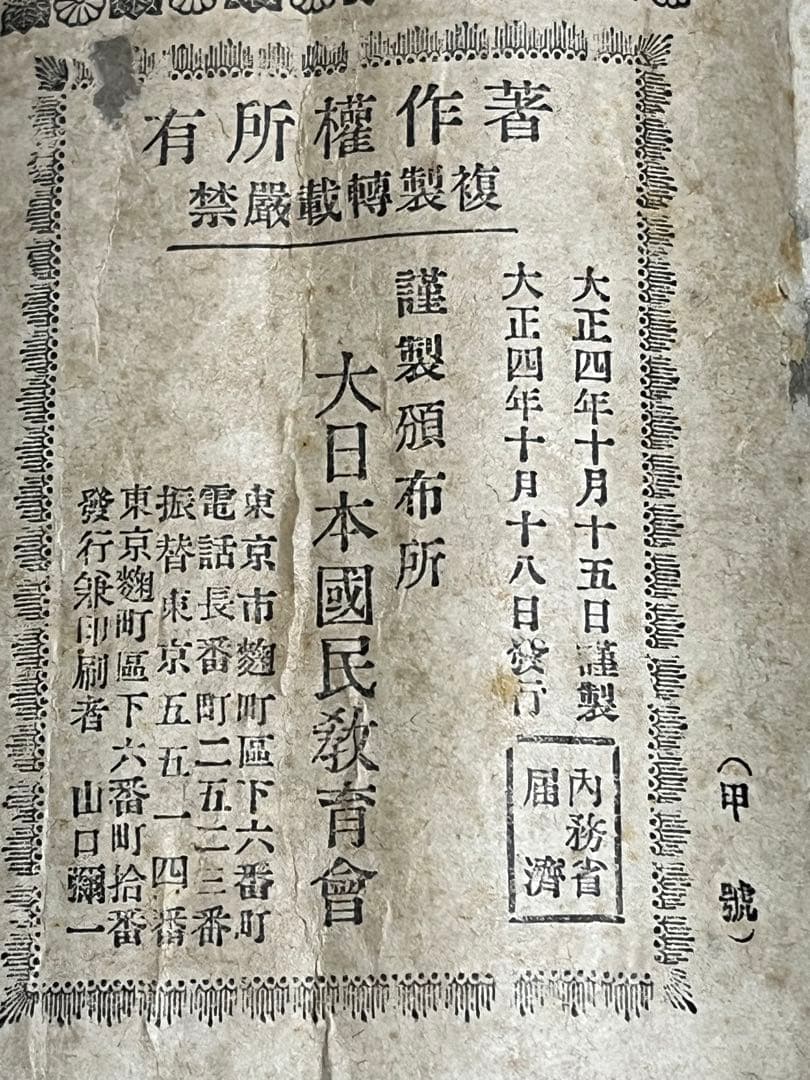 著作權所有
複製轉載嚴禁
大正四年十月十五日謹製
大正四年十月十八日發行
內務省
届濟
謹製頒布所
大日本國民敎育會
東京市麴町區下六番町
電話長番町二五二三番
振替東京五五一四番
東京麴町區下六番町拾番
發行兼印刷者 山口彌一
（甲號）